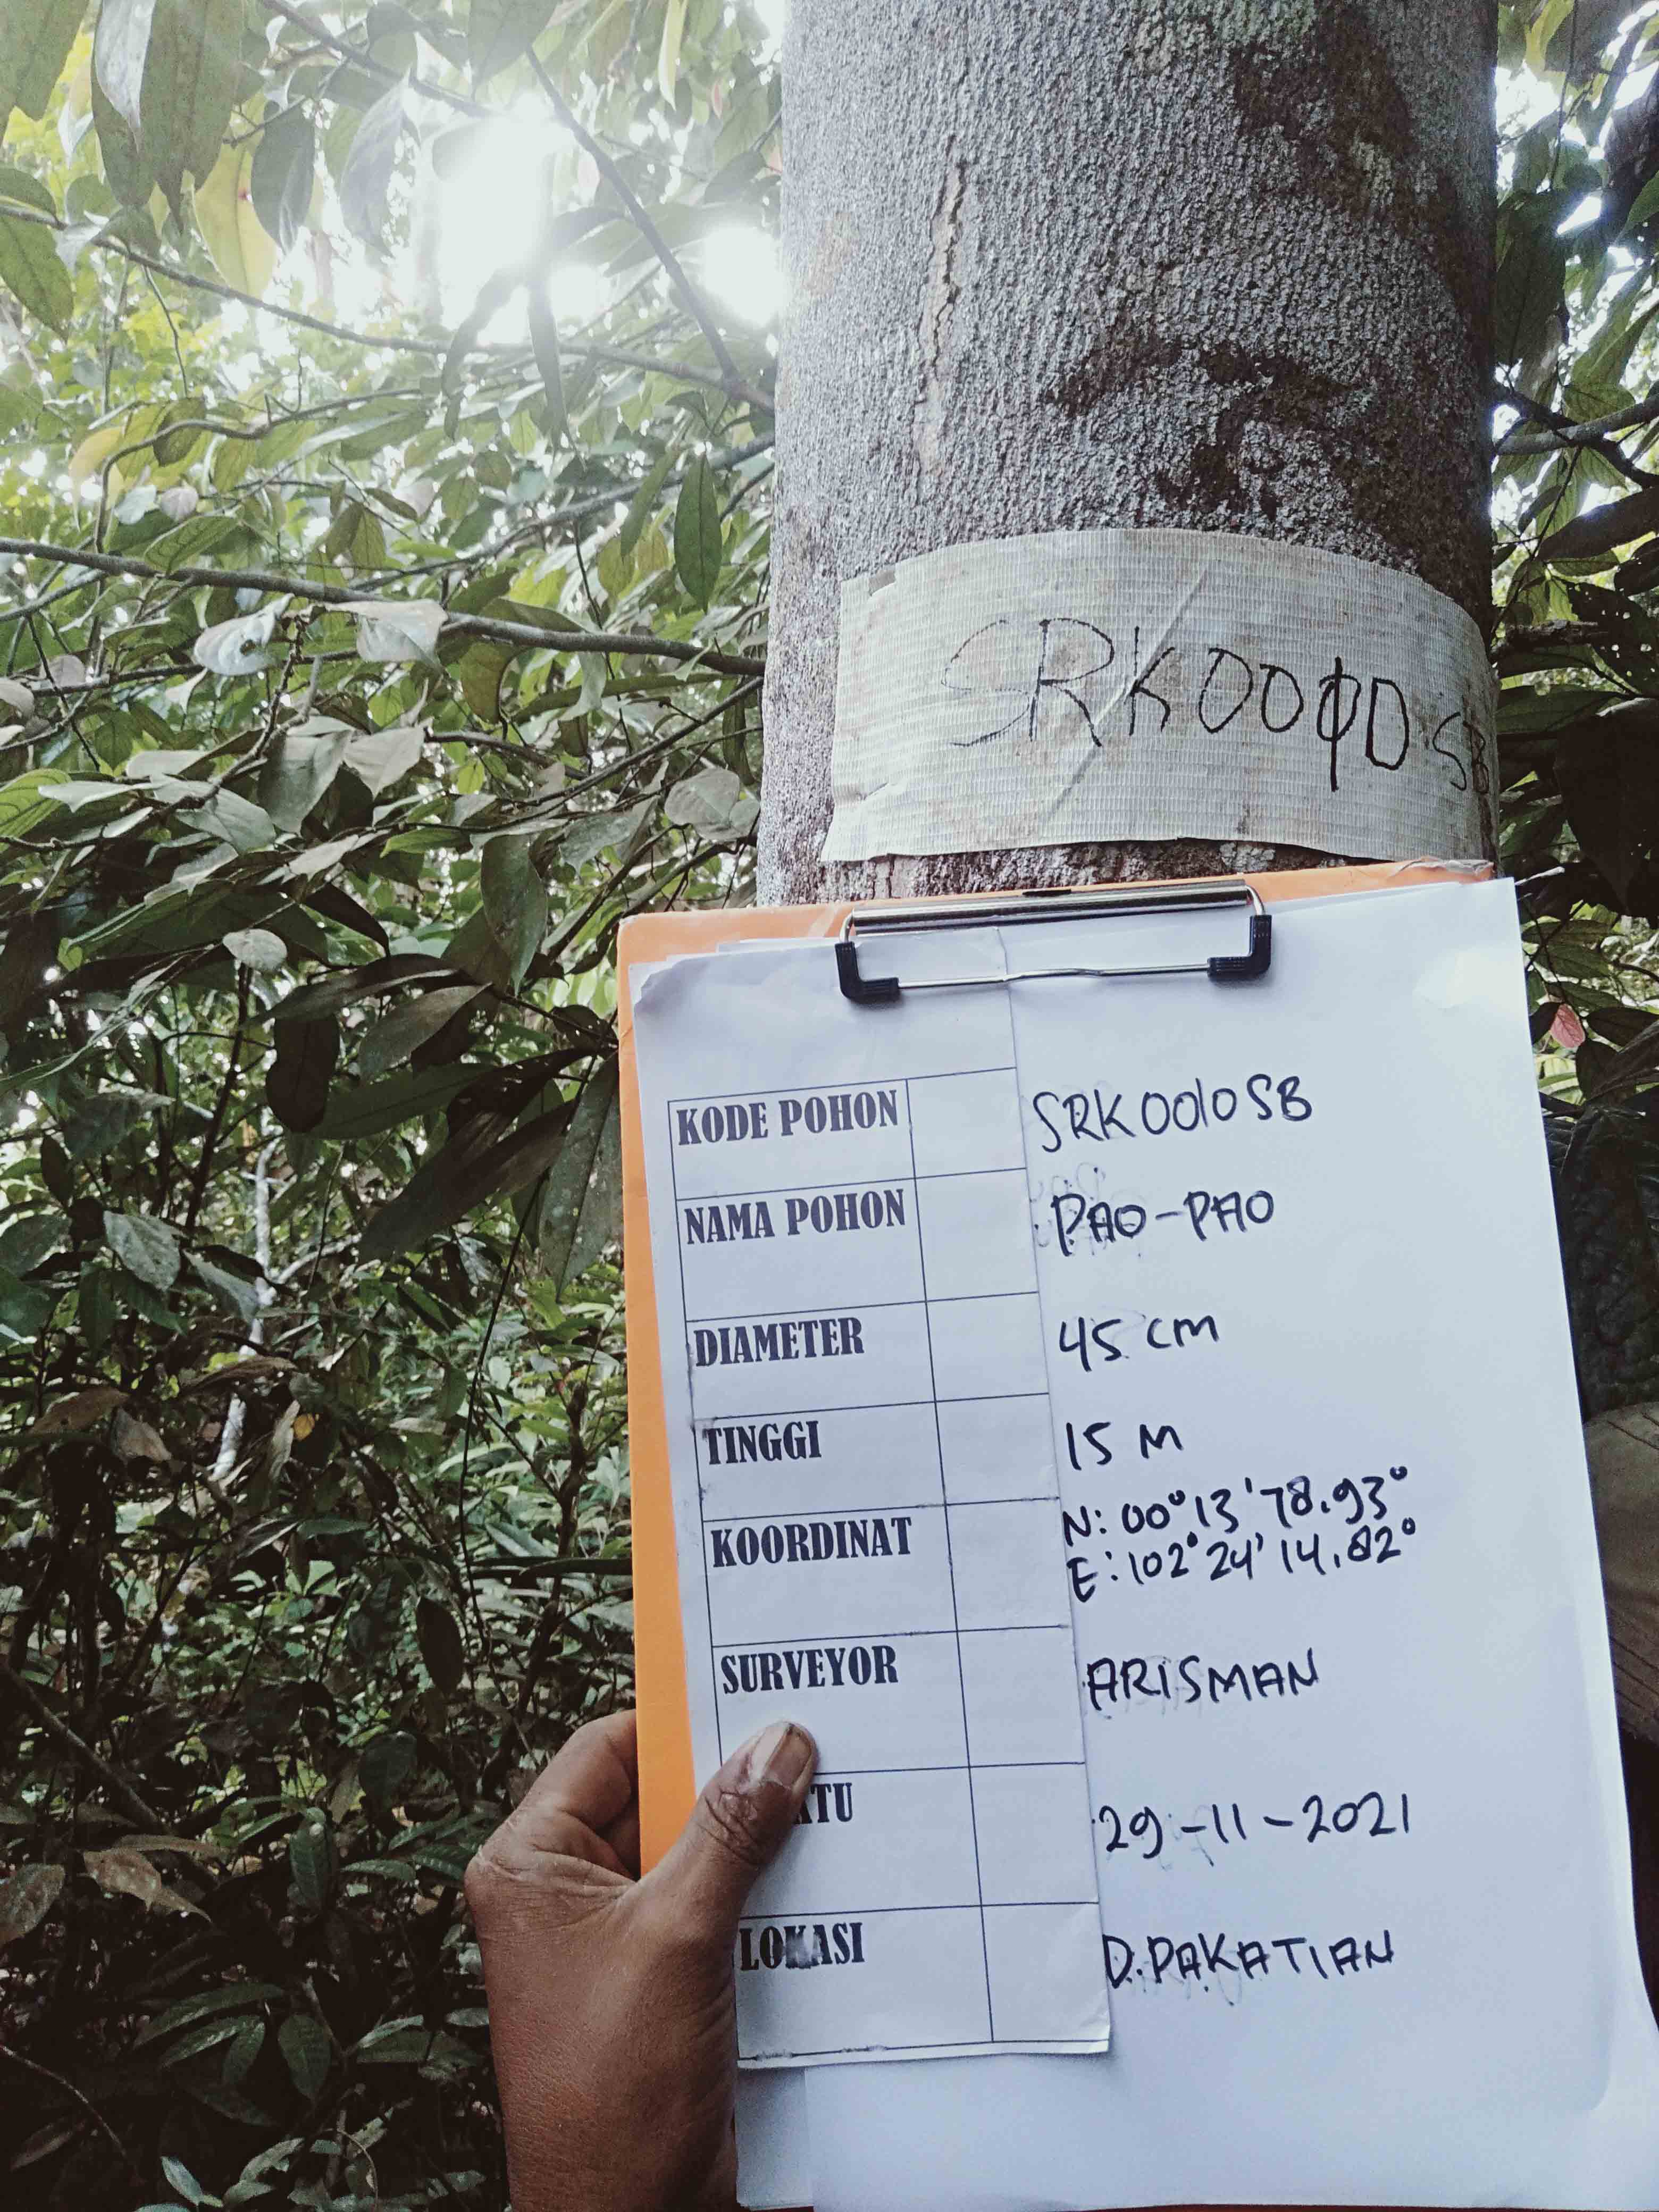 SRK0010SB
KODE POHON SRK0010SB
NAMA POHON PAO-PAO
DIAMETER 45 CM
TINGGI 15 M
KOORDINAT N: 00°13'78.93°
E: 102°24'14.82°
SURVEYOR ARISMAN
29-11-2021
LOKASI D.PAKATIAN